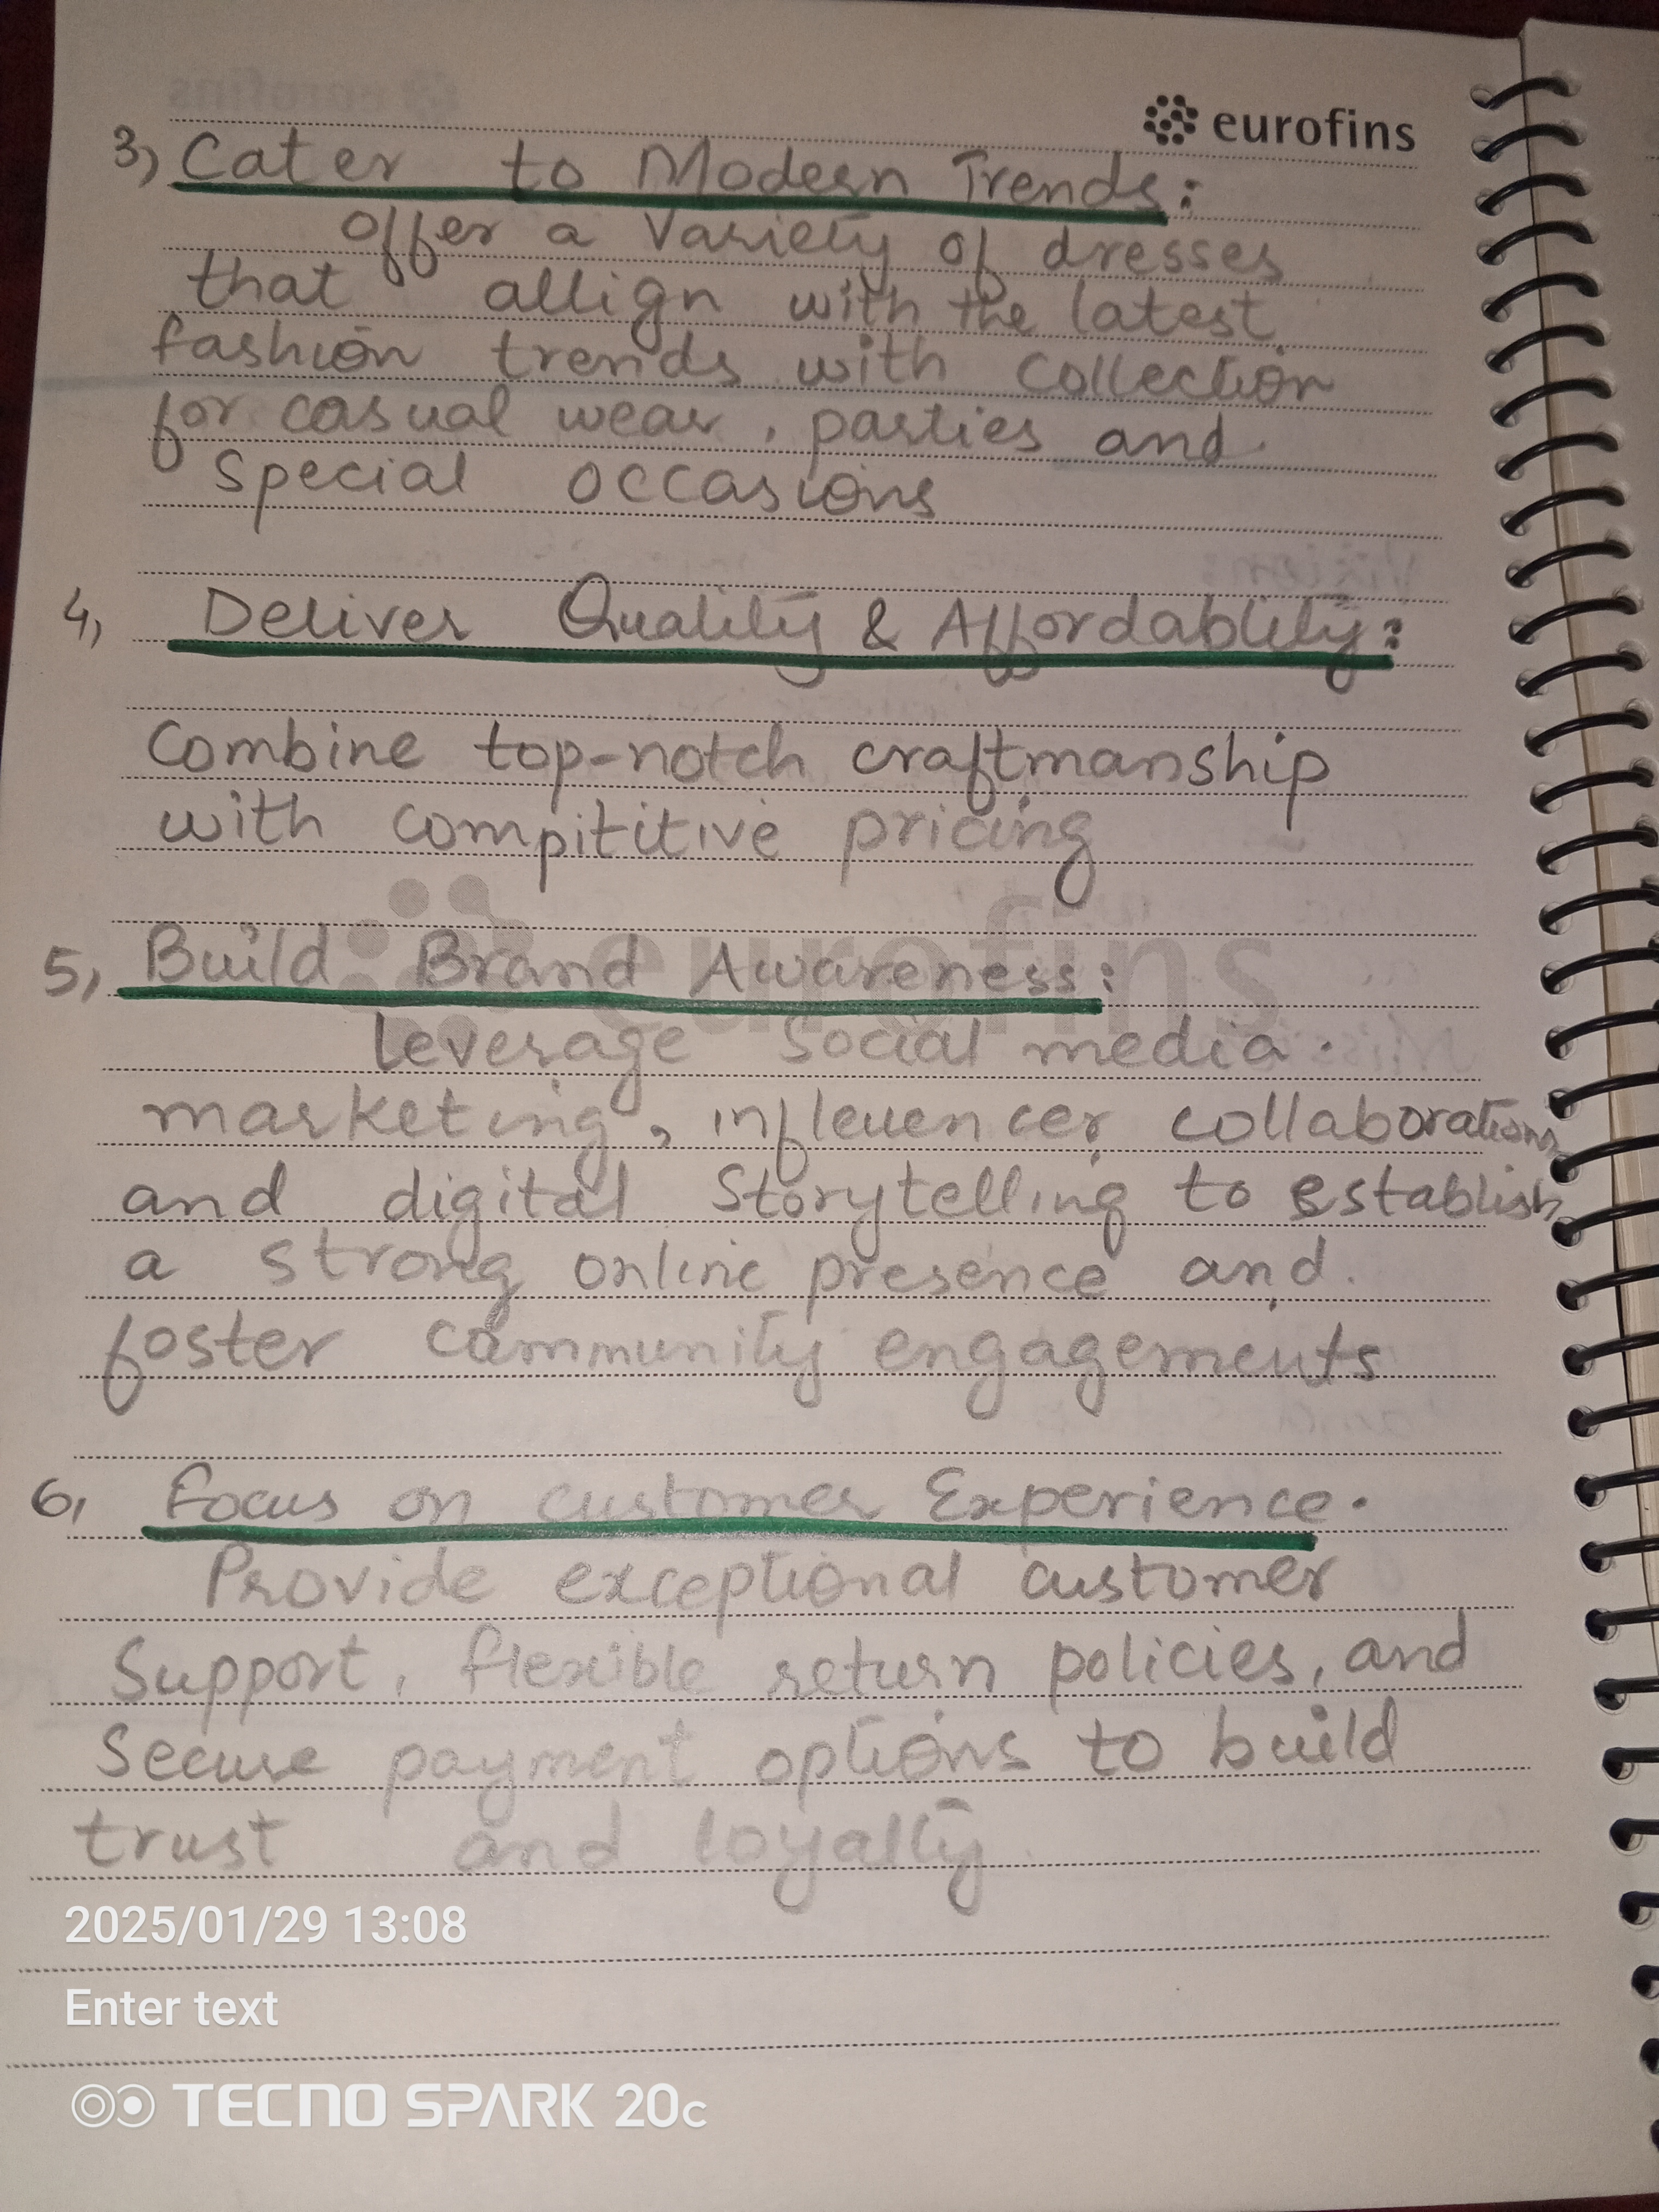 eurofins
3) Cater to Modern Trends:
offer a Variety of dresses
that allign with the latest
fashion trends with collection
for casual wear, parties and
special occasions
4) Deliver Quality & Affordablity:
Combine top-notch craftmanship
with compititive pricing
eurofins
5) Build Brand Awareness:
leverage social media
marketing, influencer collaborations
and digital storytelling to establish
a strong online presence and
foster community engagements
6) Focus on customer Experience.
Provide exceptional customer
Support, flexible return policies, and
Secure payment options to build
trust and loyalty
2025/01/29 13:08
Enter text
TECNO SPARK 20c